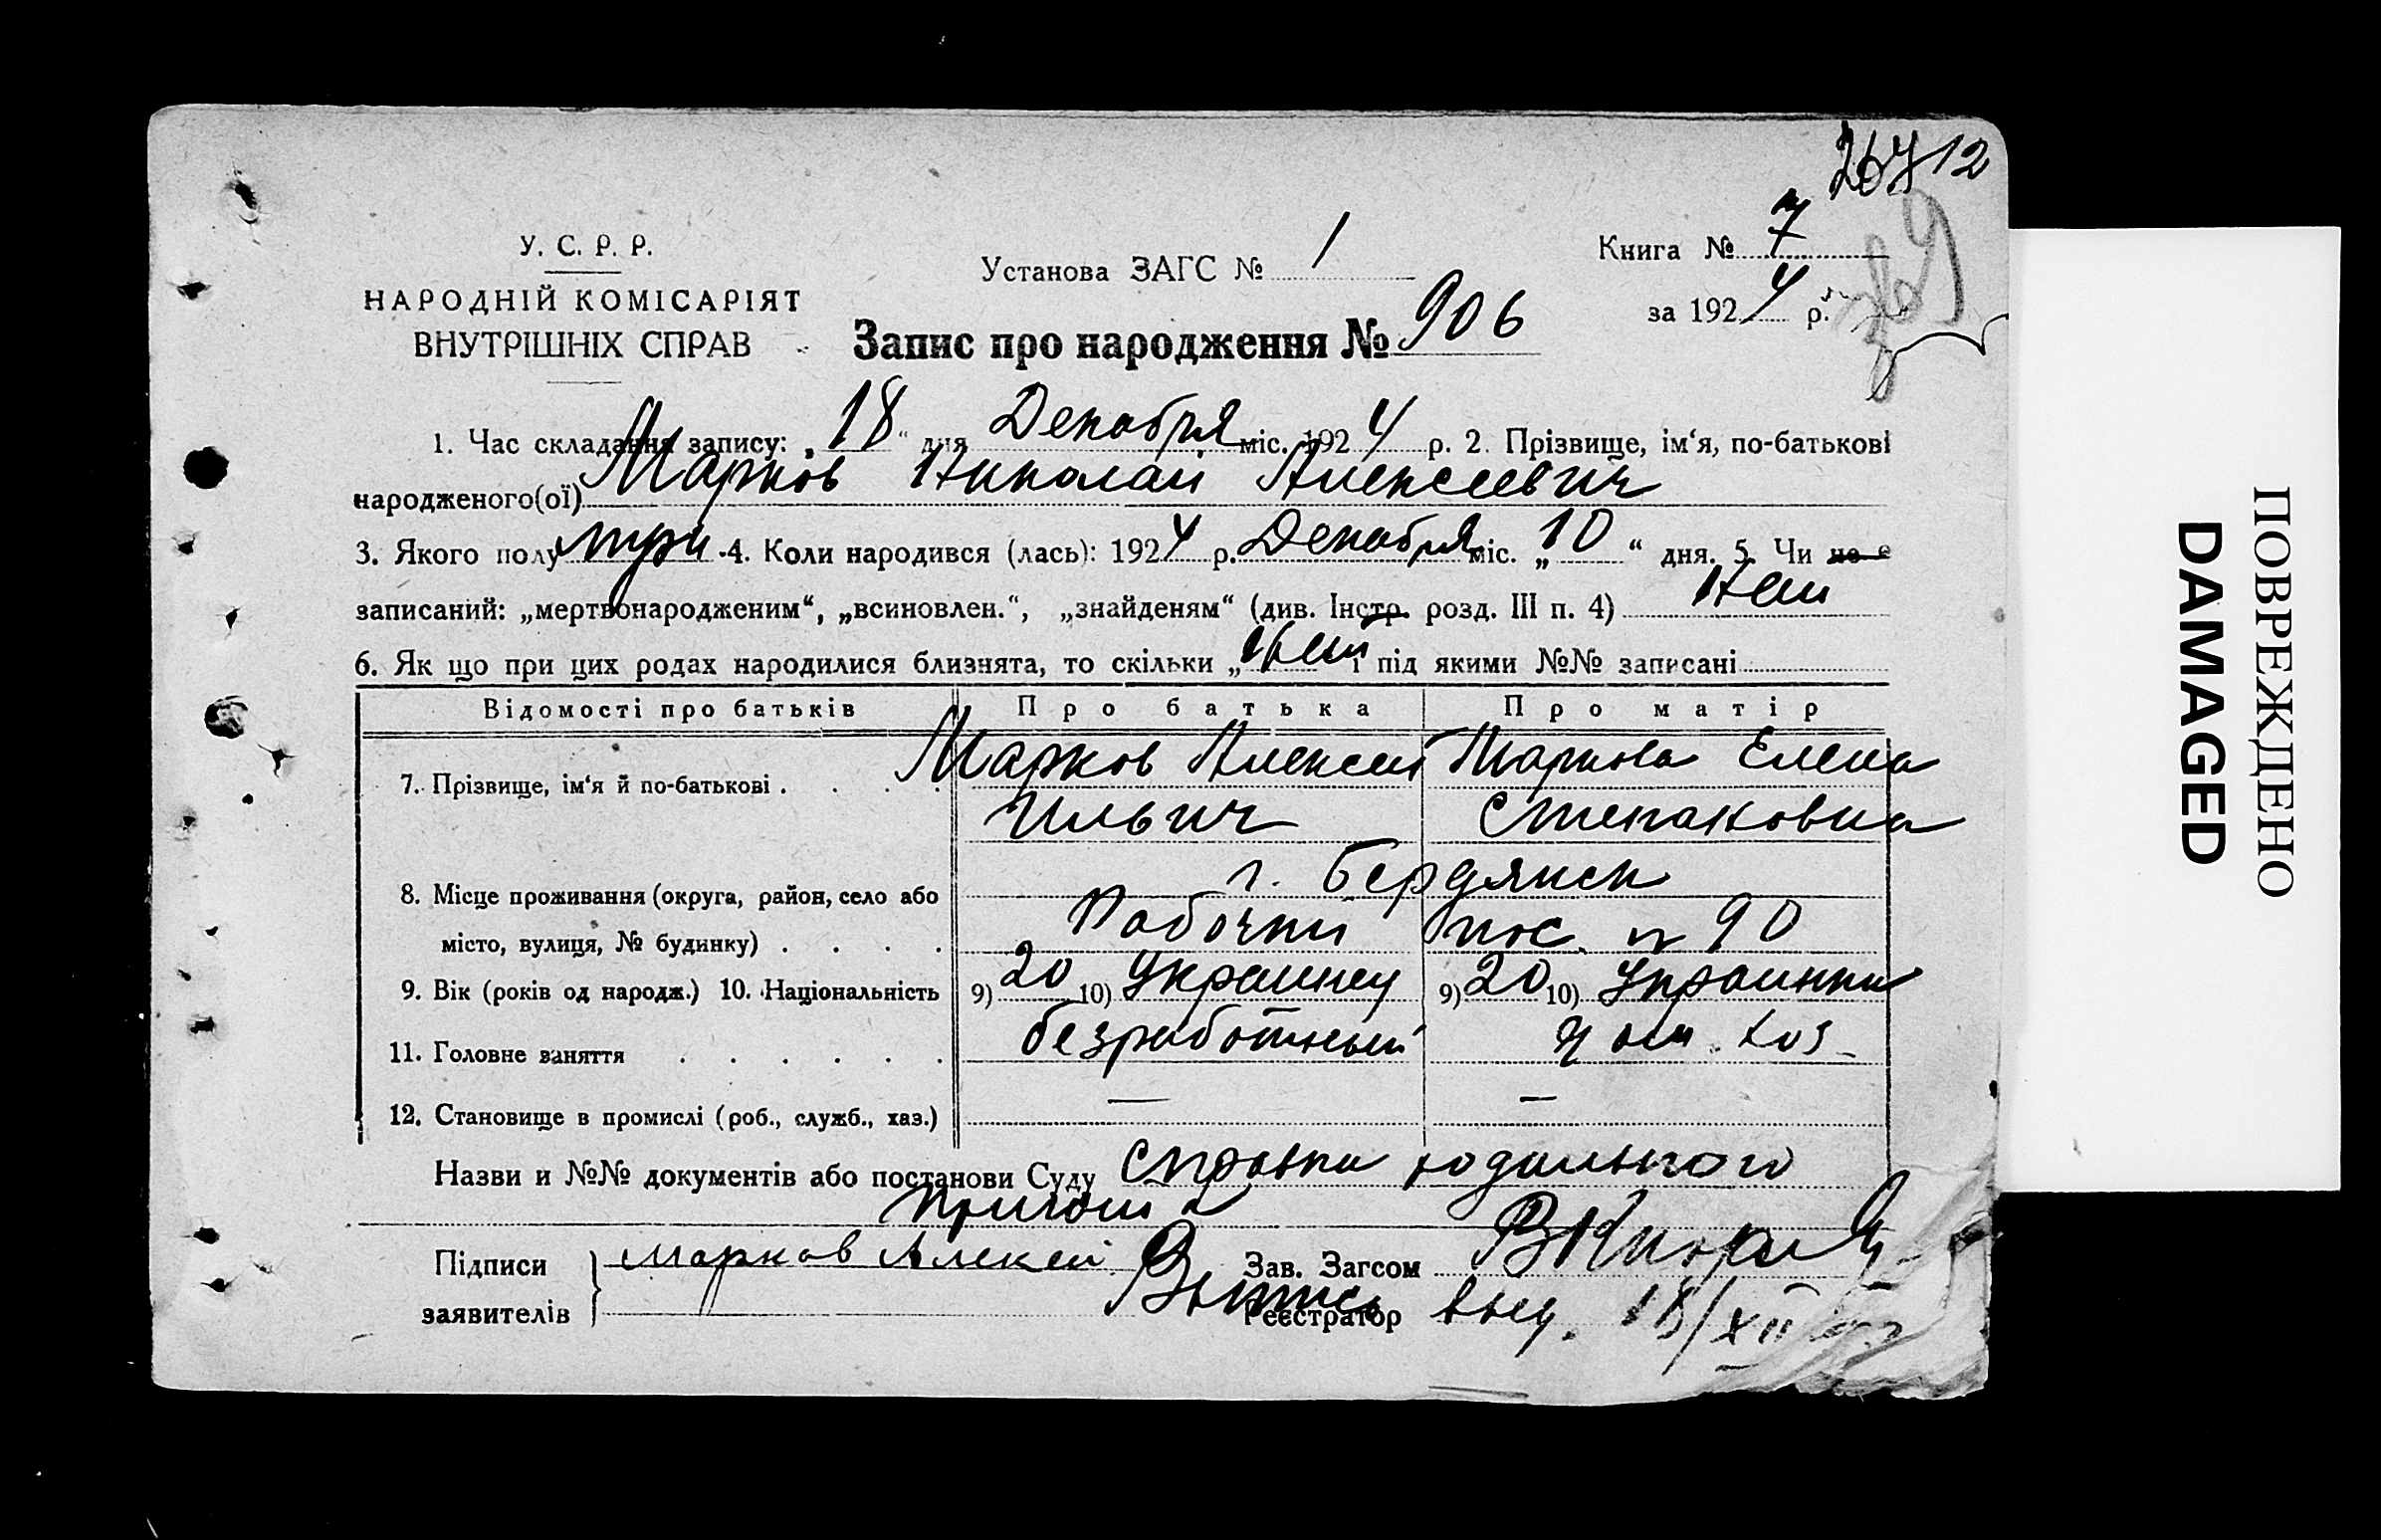 267 12
У. С. Р. Р.
НАРОДНІЙ КОМІСАРІЯТ
ВНУТРІШНІХ СПРАВ
Установа ЗАГС № 1
Книга № 7
за 1924 р.
Запис про народження № 906
1. Час складання запису: „18“ дня Декабря міс. 1924 р. 2. Прізвище, ім‘я, по-батькові
народженого(ої) Марков Николай Алексеевич
3. Якого полу муж. 4. Коли народився (лась): 1924 р. Декабря міс. „10“ дня. 5. Чи не є
записаний: „мертвонародженим“, „всиновлен.“, „знайденям“ (див. Інстр. розд. III п. 4) Нет
6. Як що при цих родах народилися близнята, то скільки „Нет і під якими №№ записані
Відомості про батьків Про батька Про матір
7. Прізвище, ім‘я й по-батькові . . . . Марков Алексей Маркова Елена
Ильич Степановна
8. Місце проживання (округа, район, село або г. Бердянск
місто, вулиця, № будинку) . . . . Рабочий пос. № 90
9. Вік (років од народж.) 10. Національність 9) 20 10) Украинец 9) 20 10) Украинка
11. Головне заняття . . . . . . безработный дом. хоз.
12. Становище в промислі (роб., служб., хаз.) — —
Назви и №№ документів або постанови Суду Справка родильного
приюта
Підписи
заявителів
Марков Алексей
Зав. Загсом
Реєстратор
Выпись выд. 18/XII
ПОВРЕЖДЕНО
DAMAGED